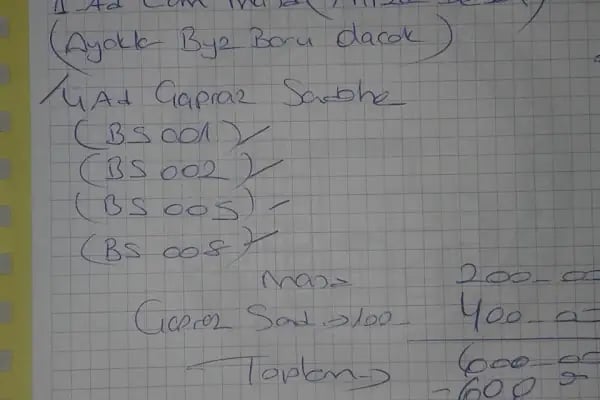 1 Ad Cam
(Ayaklı Byz Boru dacak)
4 Ad Çapraz Sandık
(BS 001)
(BS 002)
(BS 005)
(BS 008)
Masa 200-00
Çapraz Sand. → 100- 400-00
Toplam → 600-00
-600